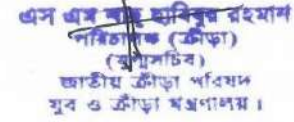 এস এম শাহ হাবিবুর রহমান
পরিচালক (ক্রীড়া)
(যুগ্মসচিব)
জাতীয় ক্রীড়া পরিষদ
যুব ও ক্রীড়া মন্ত্রণালয়।